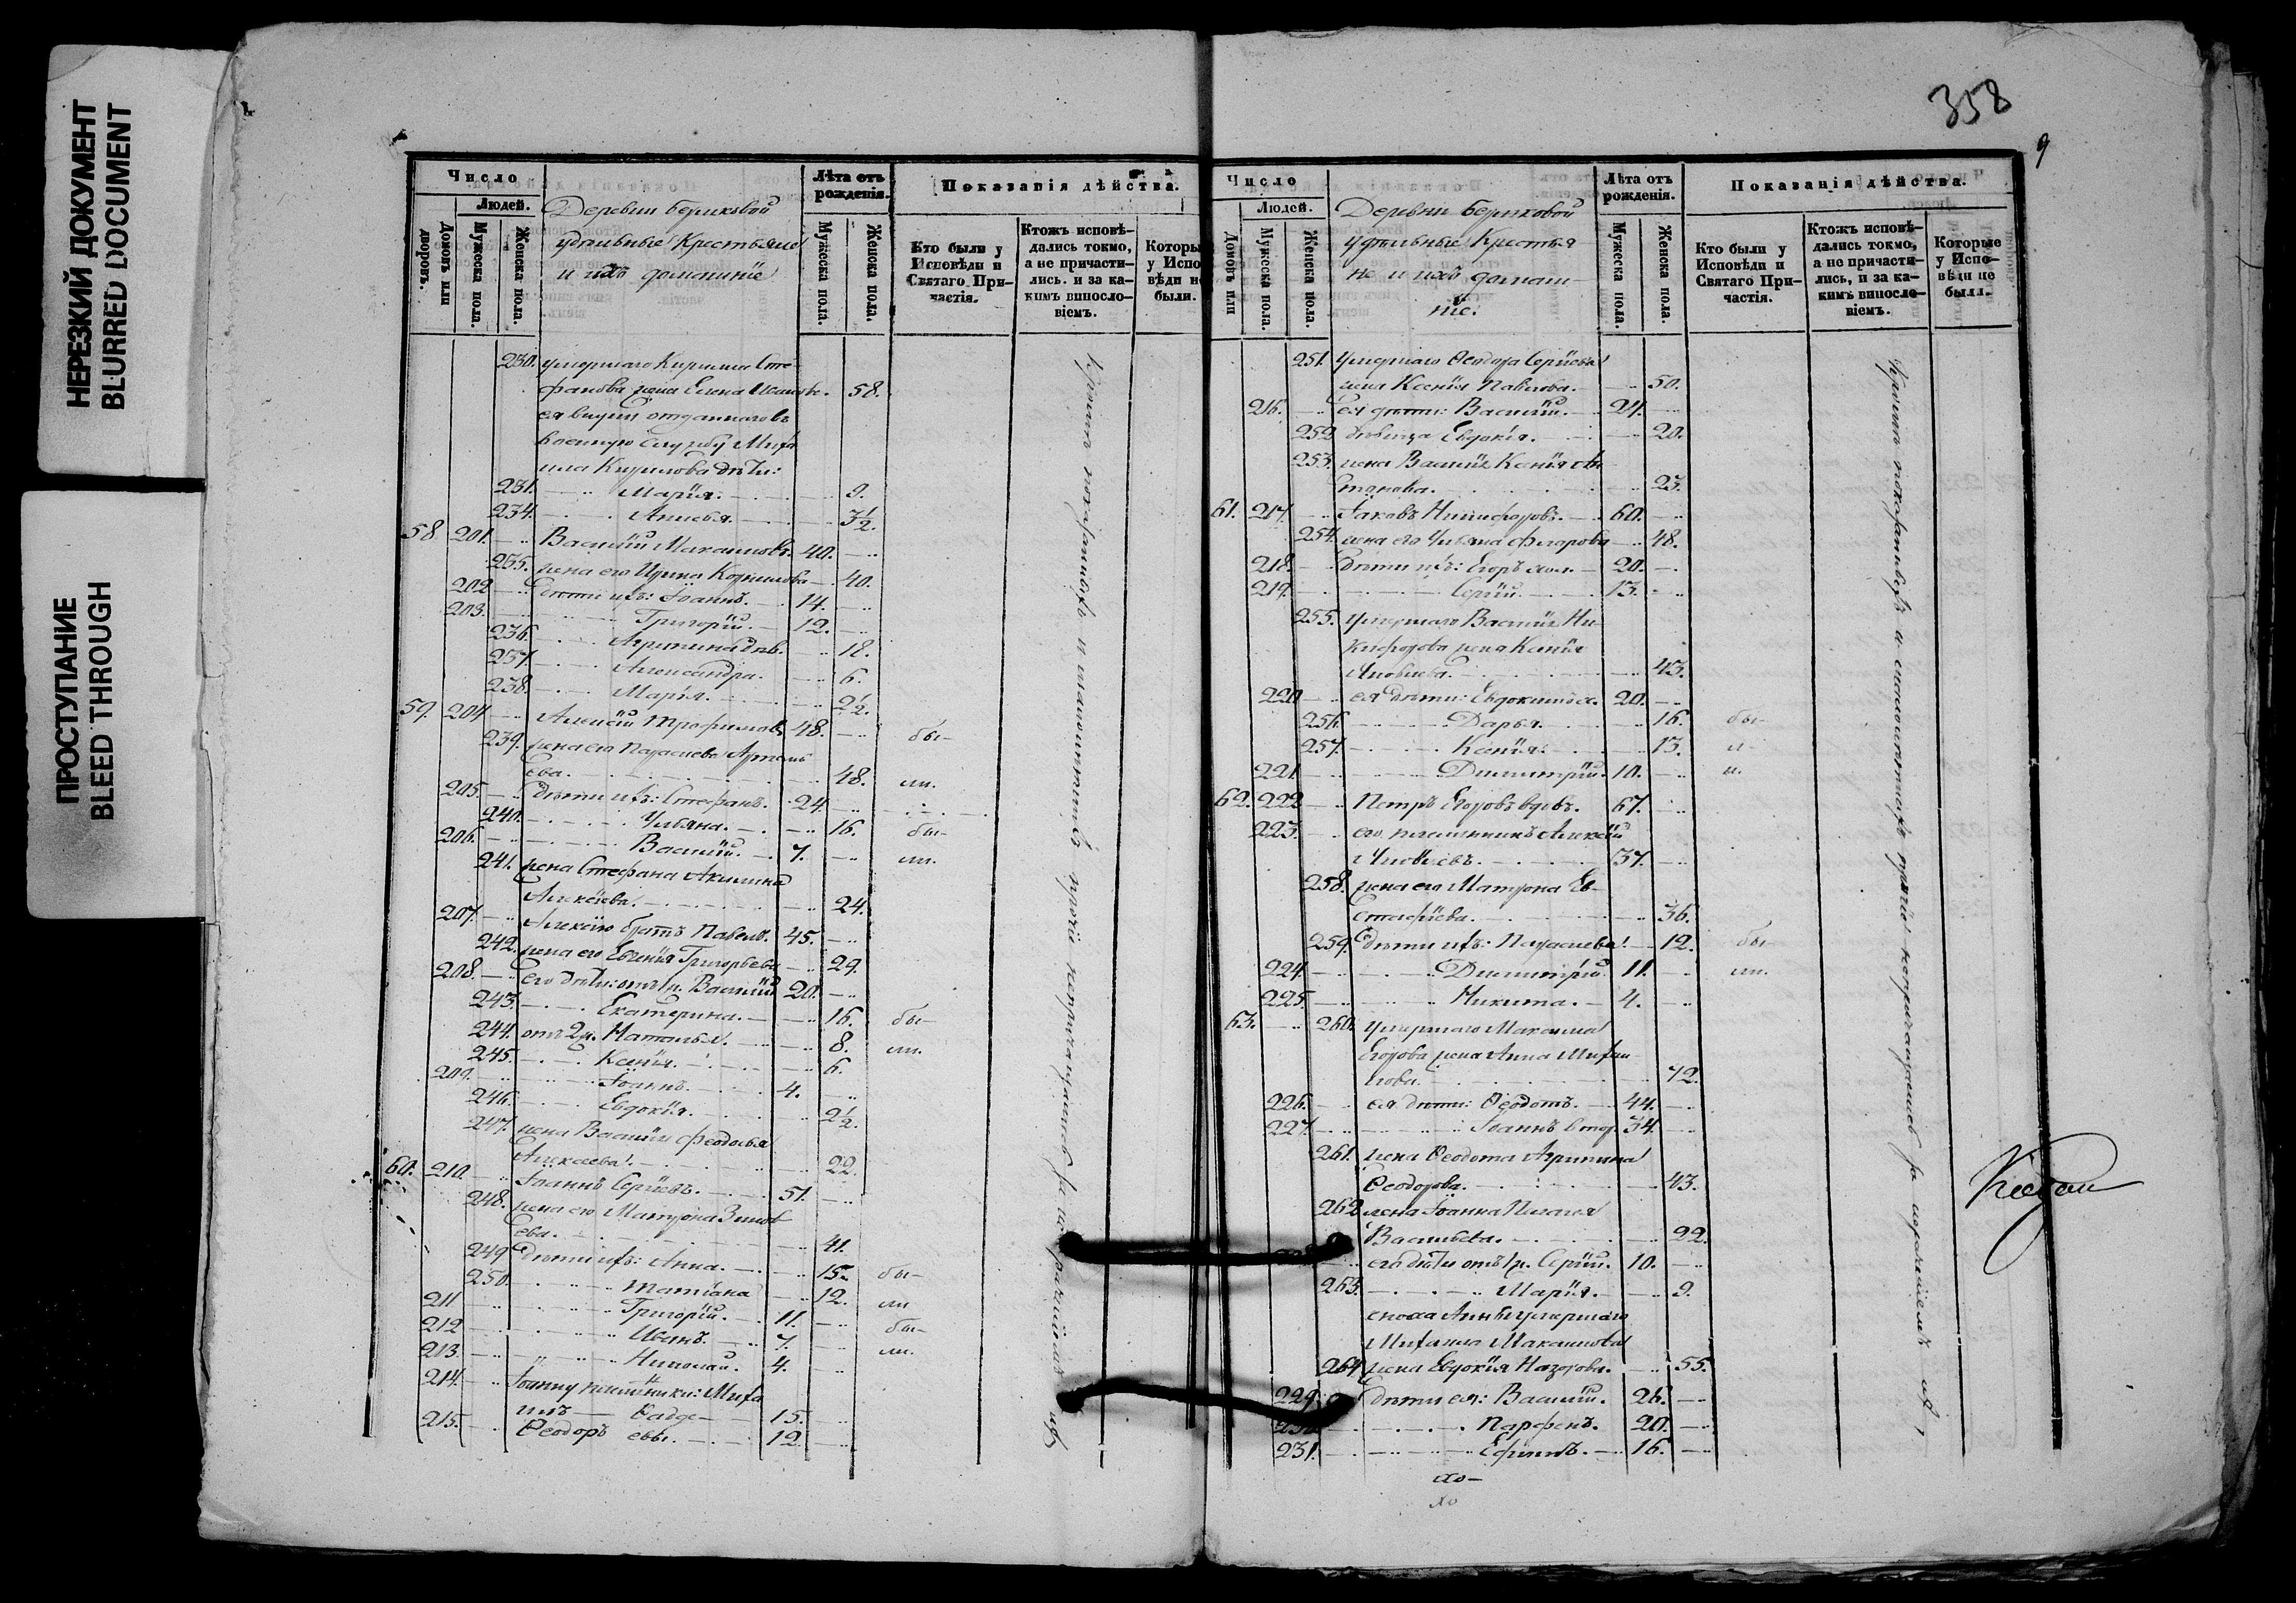 НЕРЕЗКИЙ ДОКУМЕНТ
BLURRED DOCUMENT
ПРОСТУПАНИЕ
BLEED THROUGH
Число
Людей.
Домовъ или дворовъ.
Мужеска пола.
Женска пола.
Деревни Бериковой
удѣльные Крестьяне
и ихъ домашніе
Лѣта отъ рожденія.
Мужеска пола.
Женска пола.
Показанія дѣйства.
Кто были у Исповѣди и Святаго Причастія.
Ктожъ исповѣдались токмо, а не причастились. и за какимъ винословіемъ.
Которые у Исповѣди не были.
230. умершаго Кирилла Сте
фанова жена Елена . 58.
ея внуки отданнаго въ
военную службу Миха
ила Кирилова дѣти:
231. Марія. 9.
234. Анисья. 3½
58 201. Василій Максимовъ. 40.
235. жена его Ирина Корнилова 40.
202 Дѣти ихъ: Іоаннъ. 14.
203. Григорій. 12.
236. Агрипина дѣв. 18.
237. Александра. 6.
238. Марія. 2½.
59. 204 Алексій Трофимовъ 48. бы-
239. жена его Параскева Артемь
ева. 48. ли.
205. Дѣти ихъ: Стефанъ. 24
240. Ульяна. 16. бы-
206. Василій. 7. ли.
241. жена Стефана Акилина
Алексіева. 24.
207. Алексію братъ Павелъ. 45.
242. жена его Евгенія Григорьева 29.
208. Его дѣти: отъ 1 ж. Василій 20.
243. Екатерина. 16. бы-
244. отъ 2 ж. Наталья. 8. ли.
245. Ксенія. 6.
209. Іоаннъ. 4.
246. Евдокія. 2½.
247. жена Василія Феодосья
Алексеева. 22.
60. 210. Іоаннъ Сергіевъ. 51.
248. жена его Матрона Зинов
ева. 41.
249 Дѣти ихъ: Анна. 15. бы-
250. Татіана 12. ли
211 Григорій. 11. бы-
212 Иванъ. 7. ли.
213. Николай. 4.
214. Іоанну племянники: Миха
илъ Ѳадде- 15.
215. Ѳеодоръ евы. 12.
Кромѣ показанныхъ и малолѣтнихъ прочіе непричащались за
358
9
Число
Людей.
Домовъ или
Мужеска пола.
Женска пола.
Деревни Бериковой
удѣльные Крестья
не и ихъ домаш
ніе.
Лѣта отъ рожденія.
Мужеска пола.
Женска пола.
Показанія дѣйства.
Кто были у Исповѣди и Святаго Причастія.
Ктожъ исповѣдались токмо, а не причастились, и за какимъ винословіемъ.
Которые у Исповѣди не были.
251. умершаго Ѳеодора Сергіева
жена Ксенія Павлова. 50.
216. Ея дѣти: Василій. 24.
252 дѣвица Евдокія. 20.
253. жена Василія Ксенія Сте
панова. 23.
61. 217. Іаковъ Никифоровъ. 60.
254. жена его Ульяна Фёдорова 48.
218. Дѣти ихъ: Егоръ хол. 20.
219. Сергій. 13.
255. умершаго Василія Ни
кифорова жена Ксенія
Яковлева. 43.
220 ея дѣти: Евдокимъ х. 20.
256 Дарья. 16. бы-
257. Ксенія. 13. л-
221 Димитрій. 10. и.
62. 222 Петръ Егоровъ вдовъ. 67.
223. его племянникъ Алексѣй
Яковлевъ. 37.
258. жена его Матрона Ев-
стафіева. 36.
259. Дѣти ихъ: Параскева 12. бы-
224. Димитрій. 11. ли.
225. Никита. 4.
63. 260. умершаго Максима
Егорова жена Анна Михай
лова. 72.
226. ея дѣти: Ѳеодотъ. 44.
227. Іоаннъ втор. 34.
261. жена Ѳеодота Агрипина
Ѳеодорова. 43.
262 жена Іоанна Пелагея
Васильева. 22.
его дѣти отъ 1 ж. Сергій. 10.
263. Марія. 9.
сноха Анны умершаго
Михаила Максимова
264 жена Евдокія Назарова. 55.
229. Дѣти ея: Василій. 26.
Парфенъ. 20.
231. Ефимъ. 16.
хо-
хо
Кромѣ показанныхъ и малолѣтнихъ прочіе непричащались за